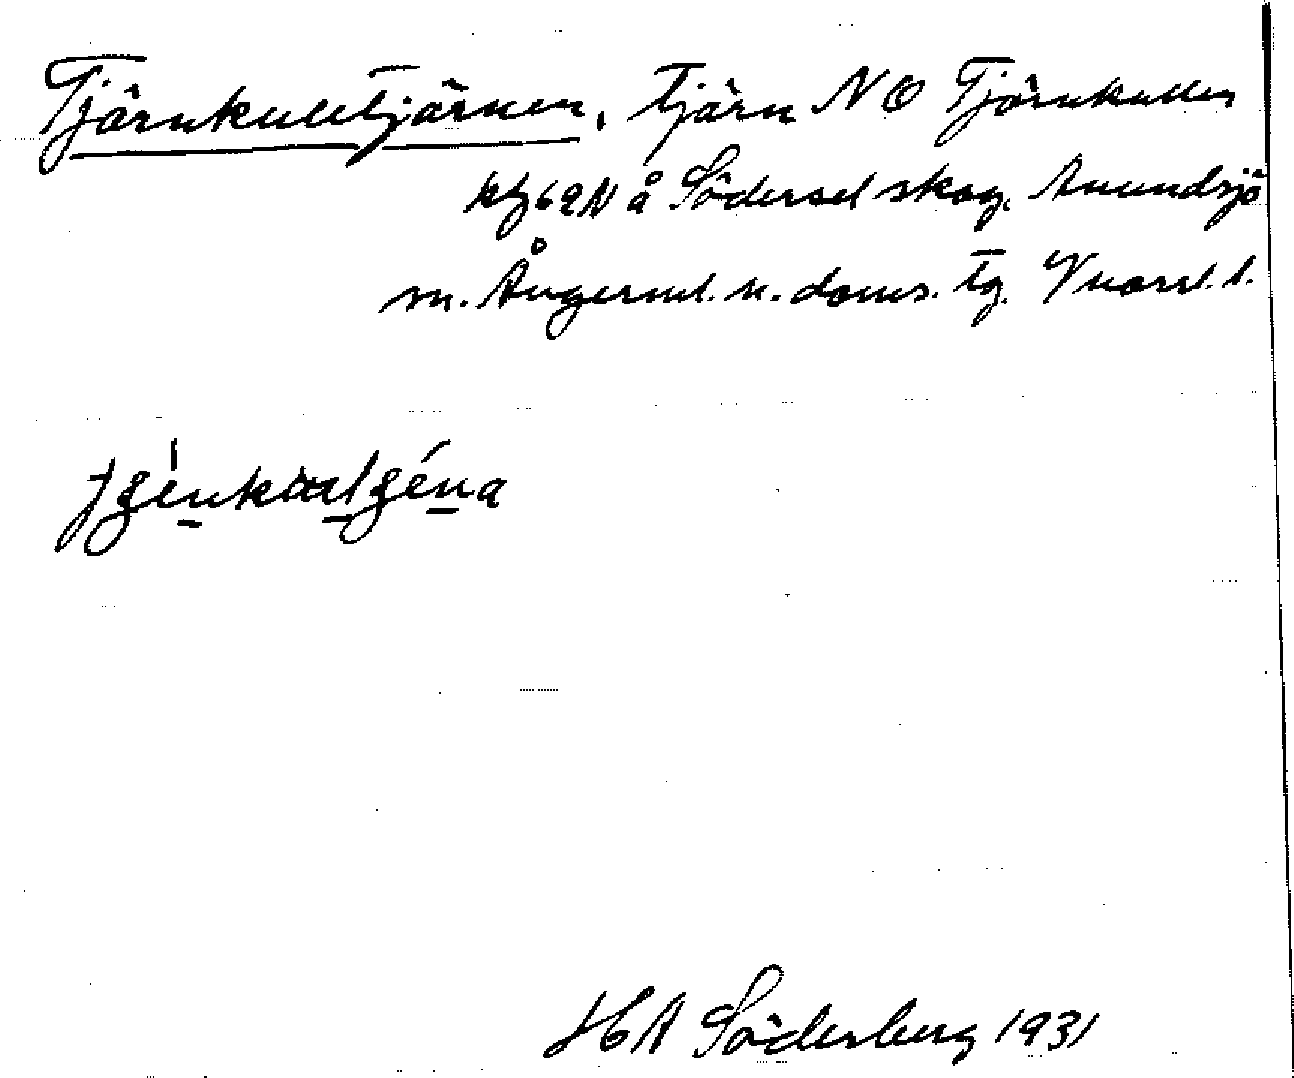 Tjärnkulltjärnen, Tjärn NO Tjärnkullen
kfb62N å Södersel skog. Anundsjö
m. Ångerml. n. doms. Tg. V norrl. l.
HA Söderberg 1931